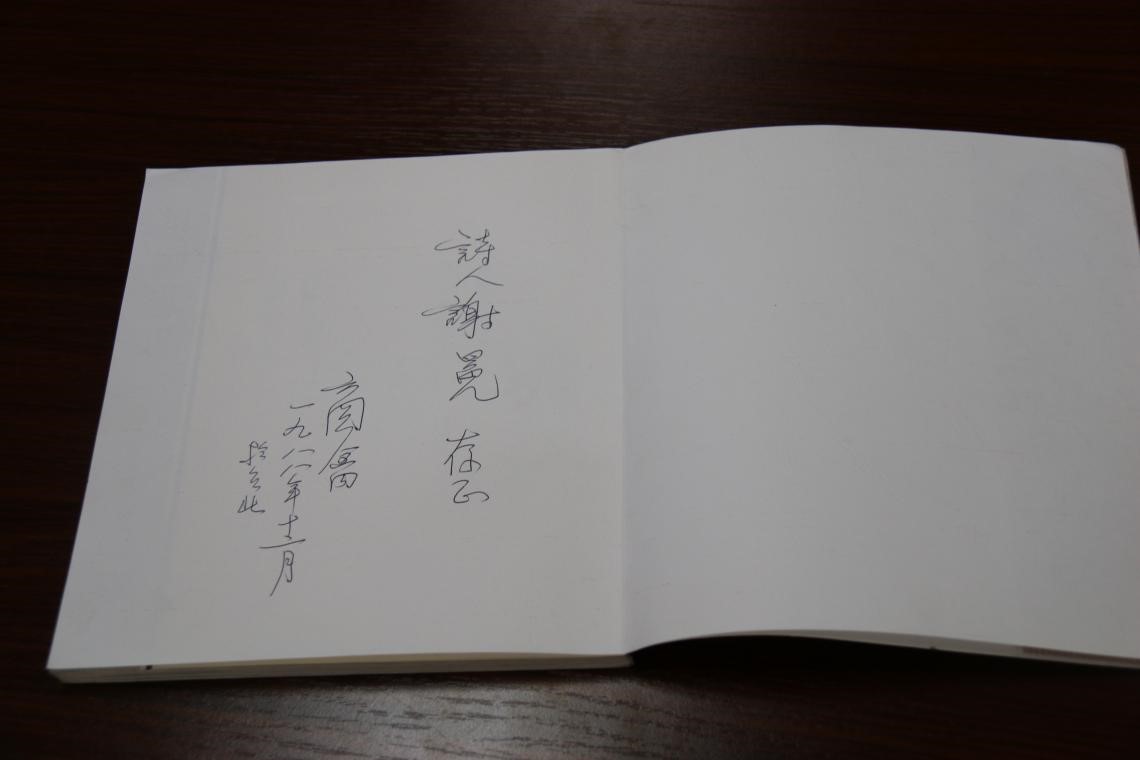 詩人謝冕 存正
商禽
一九八八年十二月
於台北